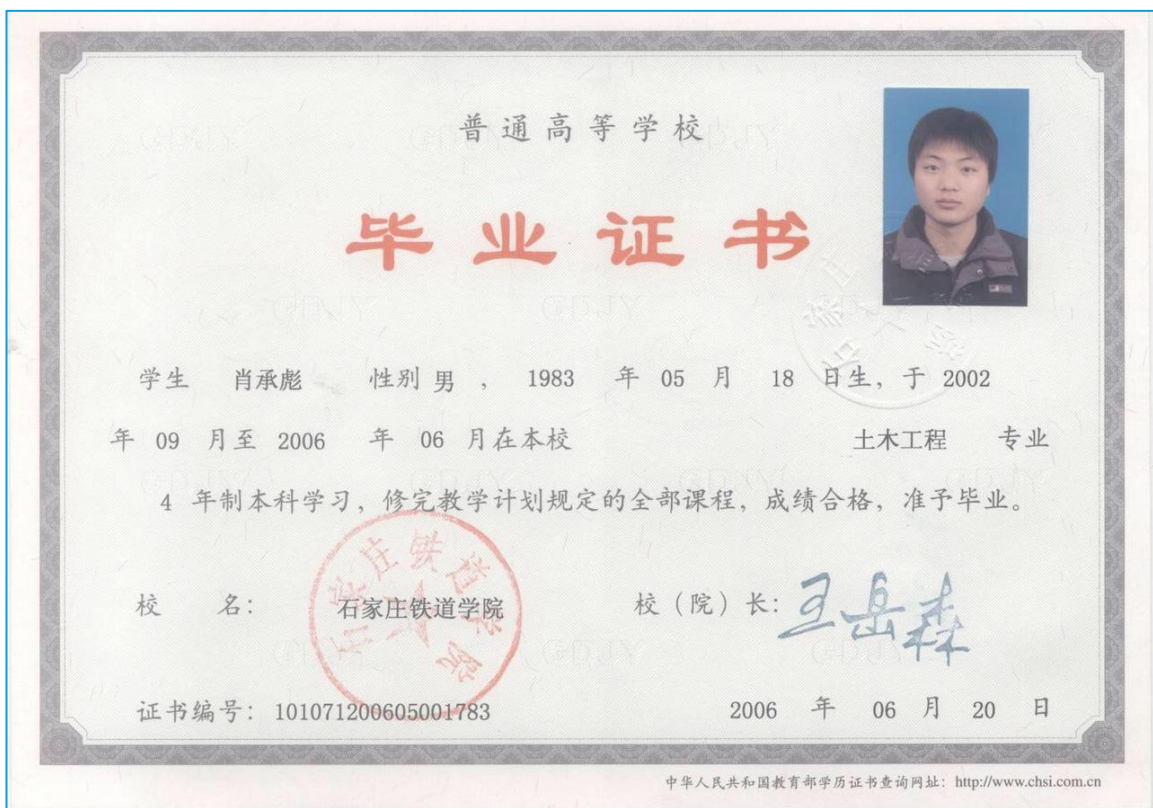 普通高等学校
毕业证书
学生 肖承彪 性别 男 , 1983 年 05 月 18 日生, 于 2002
年 09 月至 2006 年 06 月在本校 土木工程 专业
4 年制本科学习, 修完教学计划规定的全部课程, 成绩合格, 准予毕业。
校 名: 石家庄铁道学院 校(院)长: 王岳森
石家庄铁道学院
证书编号: 101071200605001783 2006 年 06 月 20 日
中华人民共和国教育部学历证书查询网址: http://www.chsi.com.cn